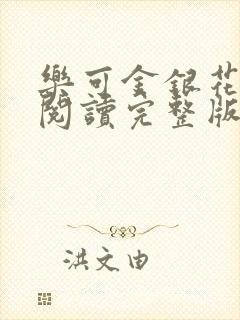 樂可金銀花
閱讀完整版
洪文由